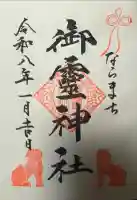 ならまち
御靈神社
令和八年一月吉日